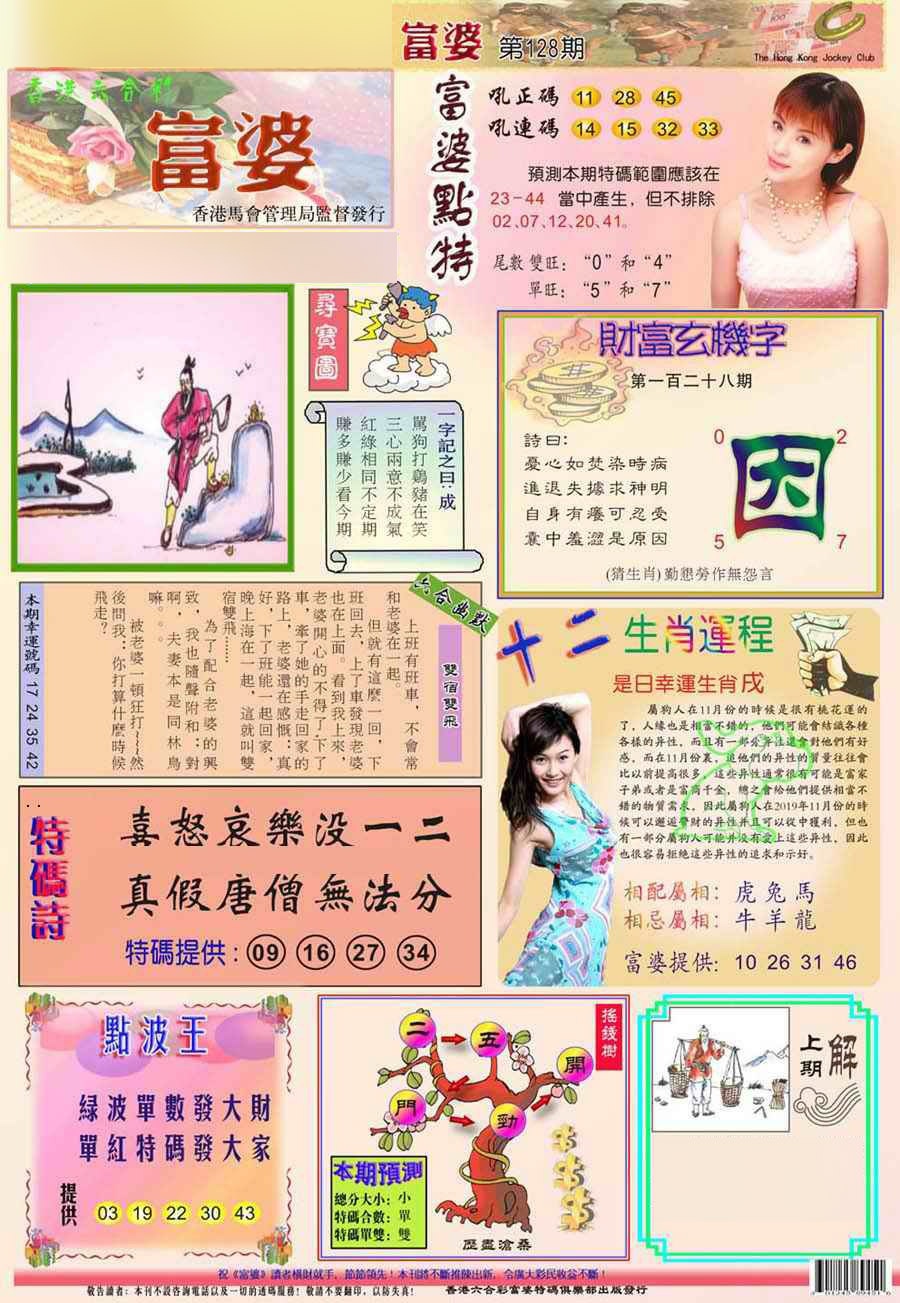 富婆 第128期
The Hong Kong Jockey Club
香港六合彩
富婆
香港馬會管理局監督發行
富婆點特
吼正碼 11 28 45
吼連碼 14 15 32 33
預測本期特碼範圍應該在
23-44 當中產生，但不排除
02、07、12、20、41。
尾數雙旺：“0”和“4”
單旺：“5”和“7”
尋寶圖
一字記之曰：成
罵狗打鷄豬在笑
三心兩意不成氣
紅綠相同不定期
賺多賺少看今期
財富玄機字
第一百二十八期
詩曰：
憂心如焚染時病
進退失據求神明
自身有癢可忍受
囊中羞澀是原因
0 2
因
5 7
(猜生肖)勤懇勞作無怨言
六合幽默
雙宿雙飛
上班有班車，不會常
和老婆在一起。
但就有這麼一回，下
班回去，上了車發現老婆
也在上面。看到我上來，
老婆開心的不得了，下了
車，牽了她的手走回家的
路上，老婆還在感慨：真
好，下了班能一起回家，
晚上海在一起，這就叫雙
宿雙飛……
為了配合老婆的興
致，我也隨聲附和：對
啊，夫妻本是同林鳥
嘛。。。
被老婆一頓狂打~~~然
後問我：你打算什麼時候
飛走？
本期幸運號碼 17 24 35 42
十二生肖運程
是日幸運生肖戌
屬狗人在11月份的時候是很有桃花運的
了，人緣也是相當不錯的，他們可能會結識各種
各樣的异性，而且有一部分异性還會對他們有好
感，而在11月份裏，追他們的异性的質量往往會
比以前提高很多，這些异性通常很有可能是富家
子弟或者是富商千金，總之會給他們提供相當不
錯的物質需求，因此屬狗人在2019年11月份的時
候可以邂逅多財的异性并且可以從中獲利，但也
有一部分屬狗人可能并没有愛上這些异性，因此
也很容易拒絶這些异性的追求和示好。
相配屬相：虎兔馬
相忌屬相：牛羊龍
富婆提供：10 26 31 46
特碼詩
喜怒哀樂没一二
真假唐僧無法分
特碼提供：09 16 27 34
點波王
緑波單數發大財
單紅特碼發大家
提供 03 19 22 30 43
搖錢樹
二 五 開
門 勁
本期預測
總分大小：小
特碼合數：單
特碼單雙：雙
歷盡滄桑
上期解
祝《富婆》讀者橫財就手，節節領先！本刊將不斷推陳出新，令廣大彩民收益不斷！
敬告讀者：本刊不設咨詢電話以及一切的透碼服務！敬請不要翻印，以防失真！ 香港六合彩富婆特碼俱樂部出版發行